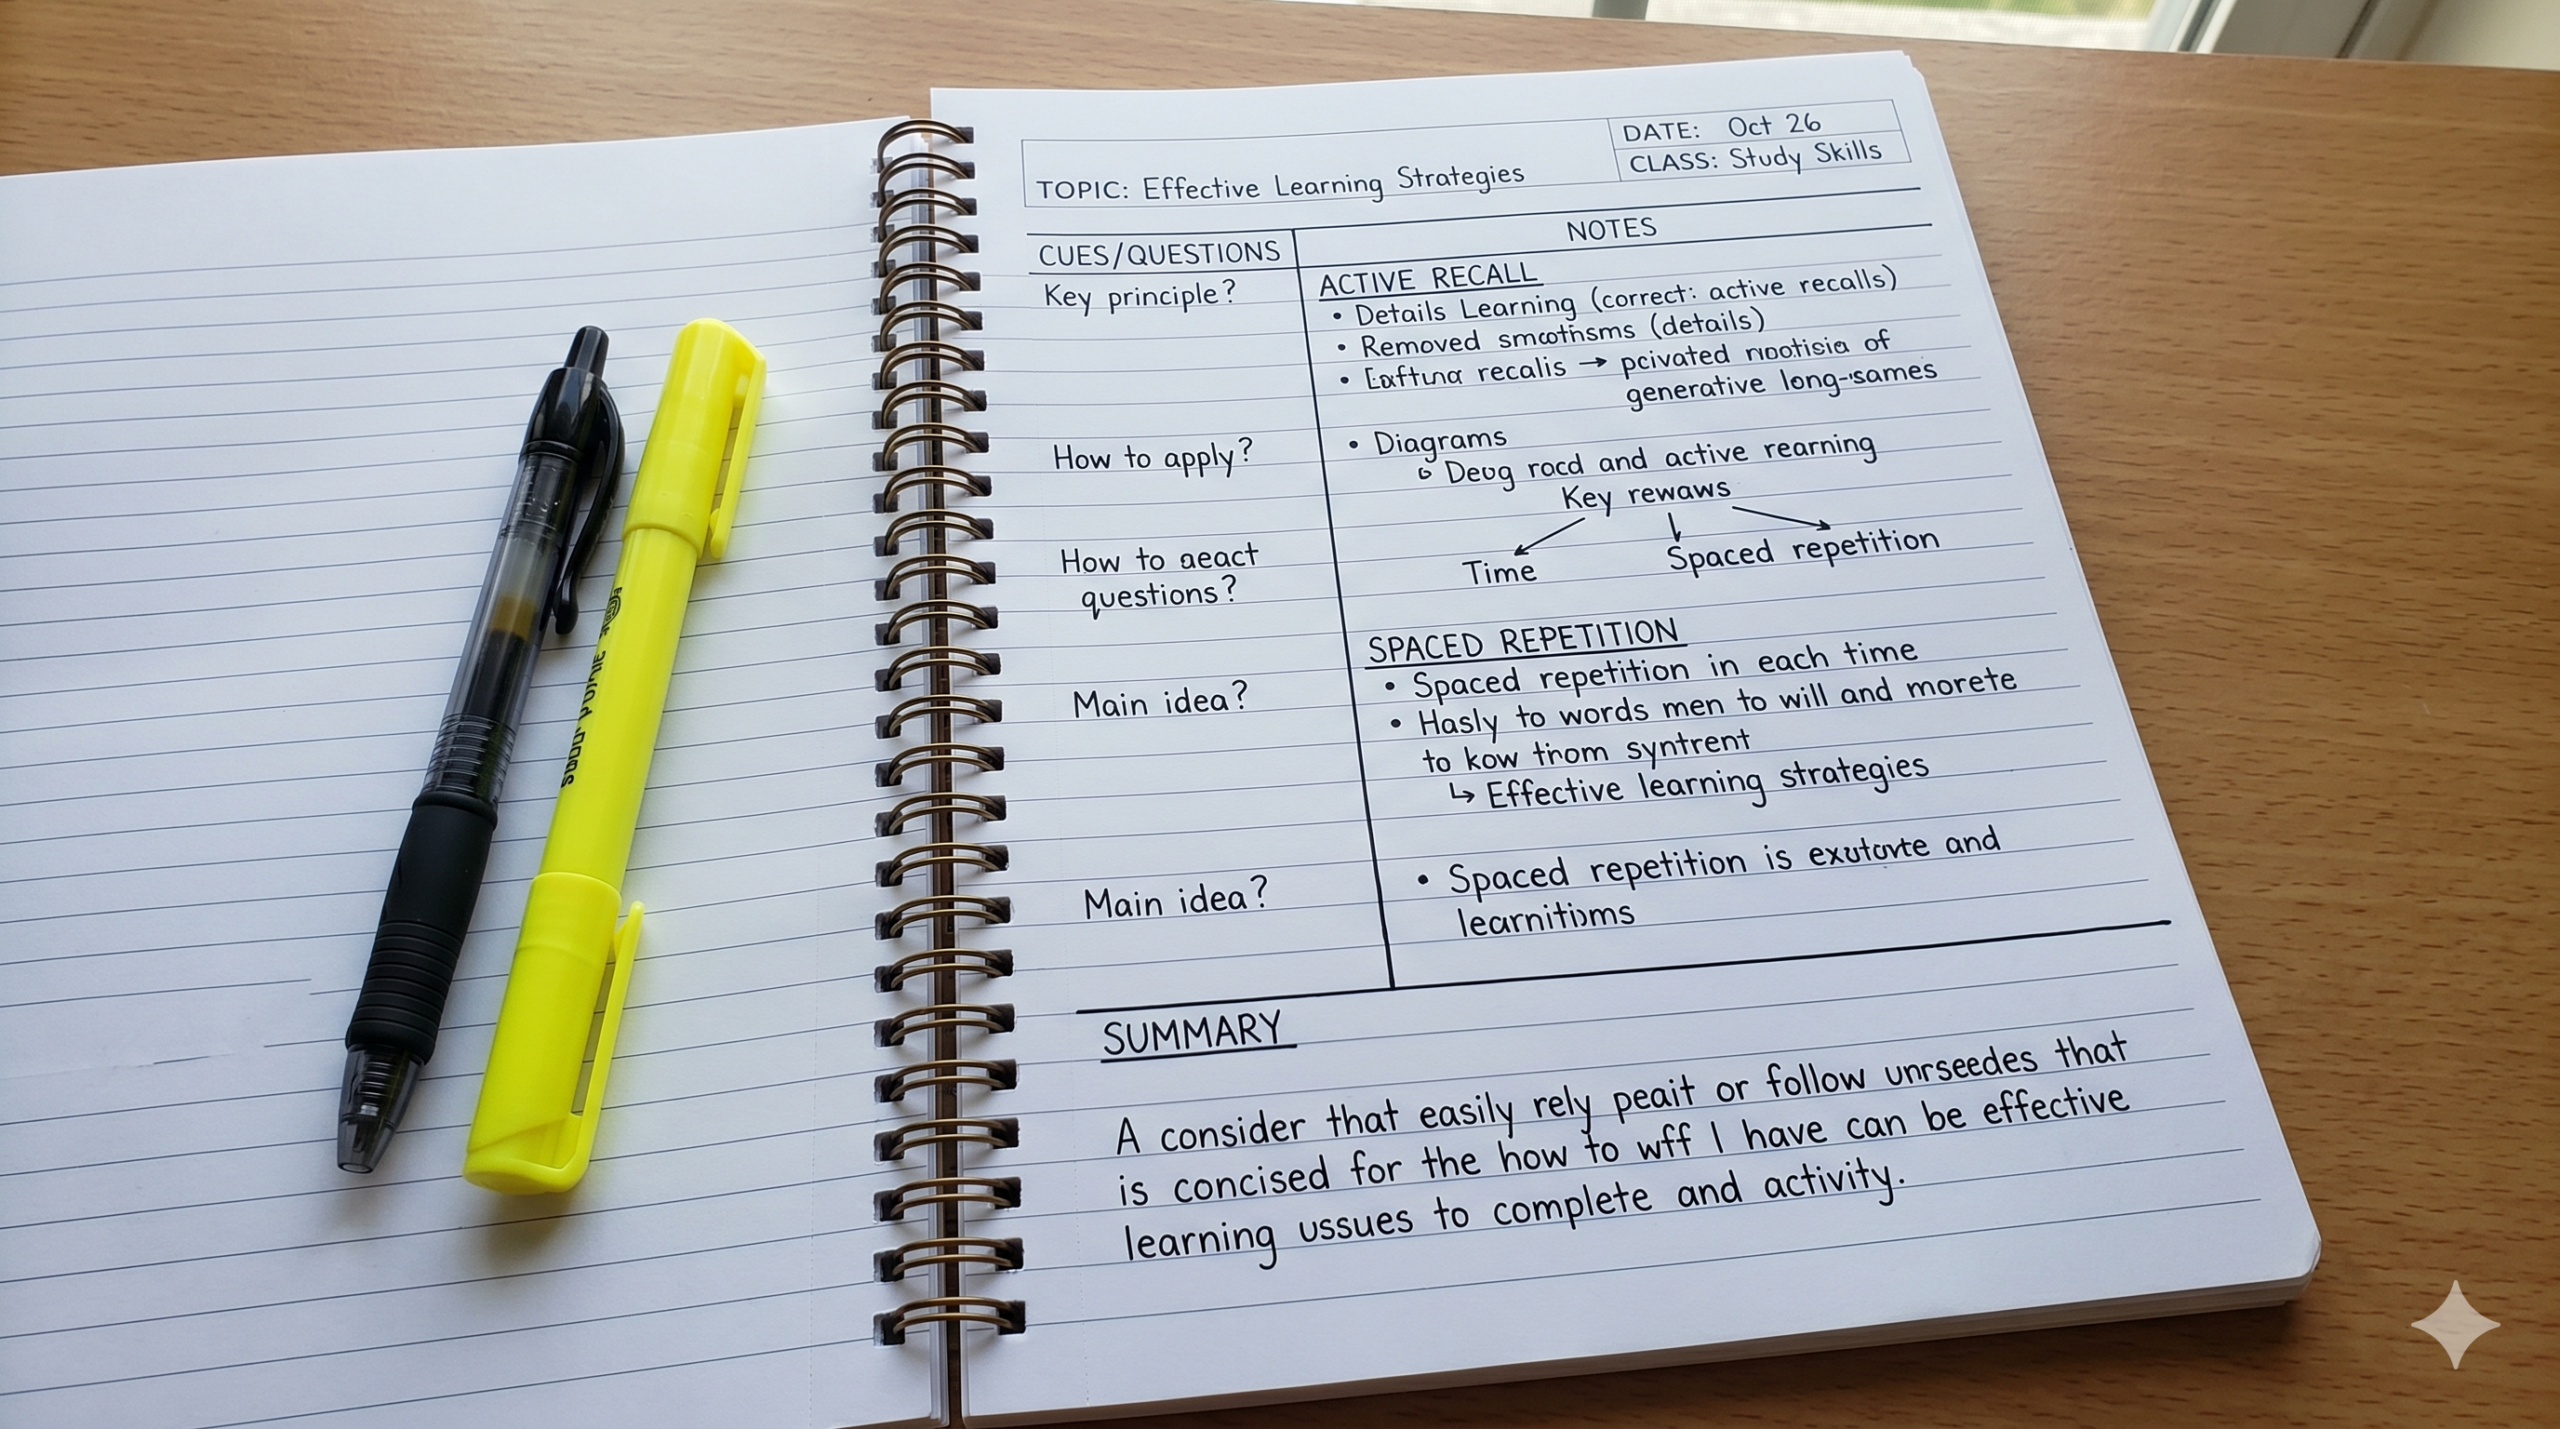 DATE: Oct 26
CLASS: Study Skills
TOPIC: Effective Learning Strategies
CUES/QUESTIONS
NOTES
Key principle?
ACTIVE RECALL
• Details Learning (correct: active recalls)
• Removed smcothsms (details)
• recalis → pcivated of
generative long-sames
How to apply?
• Diagrams
Deug rocd and active rearning
Key rewaws
Time
Spaced repetition
How to aeact
questions?
SPACED REPETITION
• Spaced repetition in each time
Main idea?
• Hasly to words men to will and morete
to kow thom syntrent
↳ Effective learning strategies
Main idea?
• Spaced repetition is and
SUMMARY
A consider that easily rely peait or follow unrseedes that
is concised for the how to wff I have can be effective
learning ussues to complete and activity.